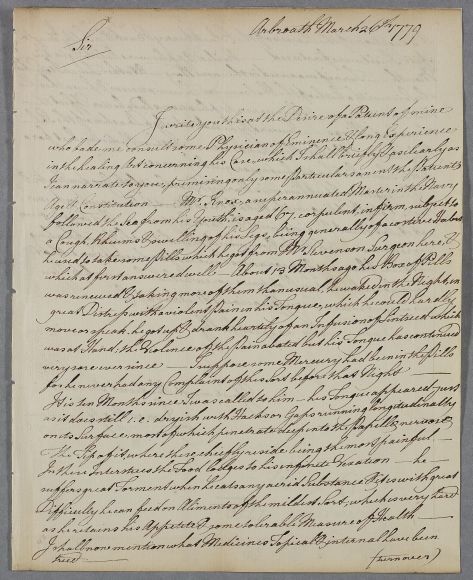 Arbroath March 26th 1779
Sir
I write you this at the Desire of a Patient of mine
who bade me consult some Physician of Eminence & long Experience
in the healing Art concerning his Case, which I shall briefly & as clearly as
I can narrate to you, premising only some Particulars anent the Patient's
Age & Constitution — Mr. a superannuated Master in the Navy
followed the Sea from his Youth, is aged 67, corpulent, infirm, subject to
a Cough, Rheums & swelling of his Legs, being generally of a costive Habit
he used to take some Pills which he got from Mr. Stevenson Surgeon here, &
which at first answered well — About 13 Months ago his Box of Pills
was renewed & taking more of them than usual, he waked in the Night, in
great Distress with a violent Pain in his Tongue, which he could hardly
move or speak, he got up & drank heartily of an Infusion of Lintseed which
was at Hand, the Violence of the Pain abated but his Tongue has continued
very sore ever since — I suppose some Mercury had been in the Pills
for he never had any Complaint of this Sort before that Night —
It is ten Months since I was called to him — his Tongue appeared just
as it does still i.e. dryish with Hacks or Gaps running longitudinally
on its Surface, most of which penetrate deep into the Papillæ nervosæ
The Tip of it where these chiefly reside being the most painful —
In these Interstices the Food lodges to his infinite Vexation — he
suffers great Torment when he eats any acrid Substance & tis with great
Difficulty he can feed on Aliments of the mildest Sort, which is very hard
as he retains his Appetite & some tolerable Measure of Health —
I shall now mention what Medicines Topical & internal have been
tried —
(turn over)